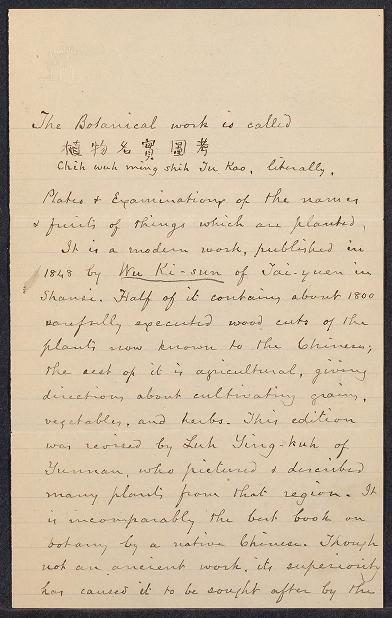 The Botanical work is called
植物名實圖考
Chih wuh ming shih Tu Kao, literally,
Plates & Examinations of the names
& fruits of things which are planted,
It is a modern work, published in
1848 by Wu Ki-sun of Tai-yuen in
Shansi. Half of it contains about 1800
carefully executed wood cuts of the
plants now known to the Chinese;
the rest of it is agricultural, giving
directions about cultivating grains,
vegetables, and herbs. This edition
was revised by Luh Ying-kuh of
Yunnan, who pictured & described
many plants from that region. It
is incomparably the best book on
botany by a native Chinese. Though
not an ancient work, its superiority
has caused it to be sought after by the